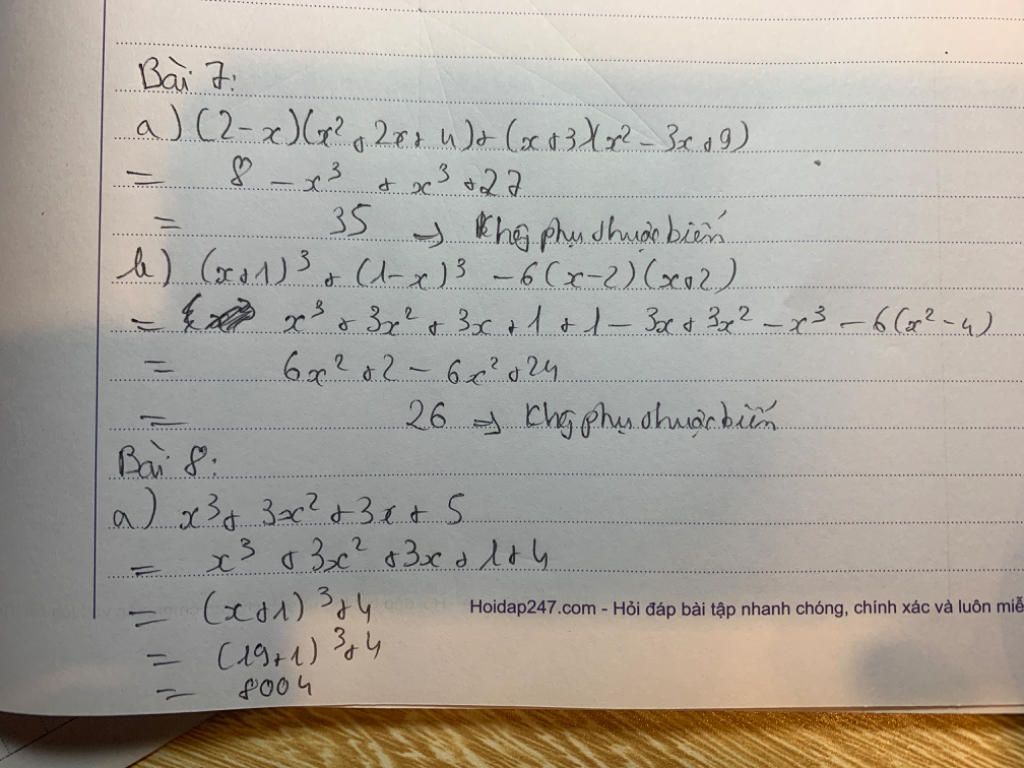 Bài 7:
a) (2-x)(x² + 2x + 4) + (x + 3)(x² - 3x + 9)
= 8 - x³ + x³ + 27
= 35 → Khg phụ thuộc biến
b) (x+1)³ + (1-x)³ - 6(x-2)(x+2)
= x³ + 3x² + 3x + 1 + 1 - 3x + 3x² - x³ - 6(x² - 4)
= 6x² + 2 - 6x² + 24
= 26 → Khg phụ thuộc biến
Bài 8:
a) x³ + 3x² + 3x + 5
= x³ + 3x² + 3x + 1 + 4
= (x+1)³ + 4
Hoidap247.com - Hỏi đáp bài tập nhanh chóng, chính xác và luôn miễ
= (19+1)³ + 4
= 8004